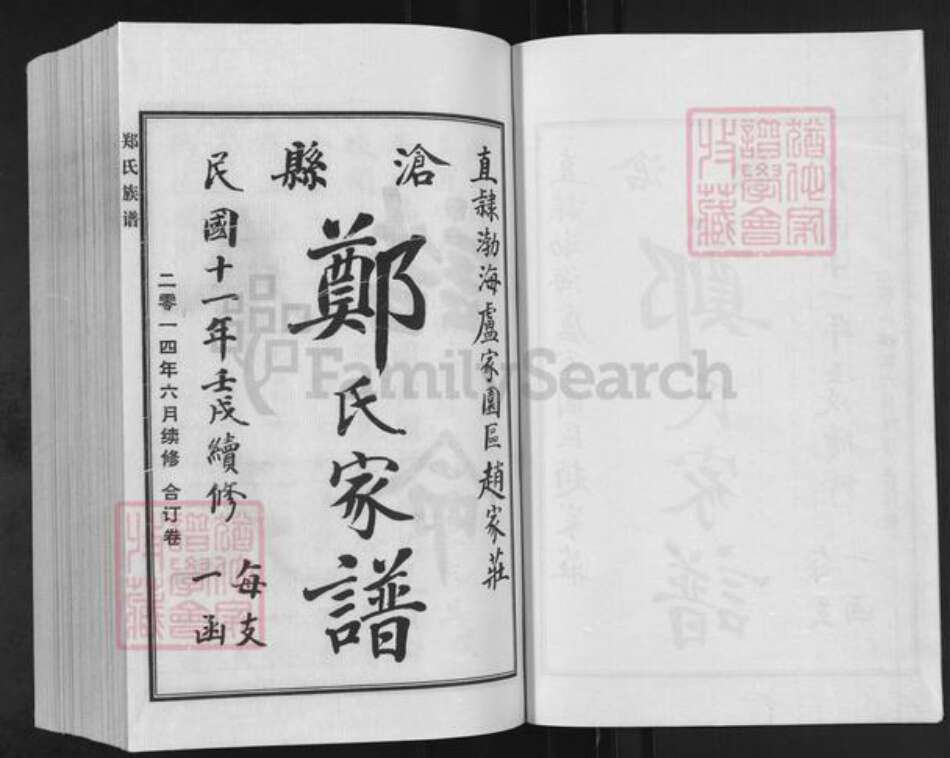 直隸渤海盧家園區趙家莊
滄縣
鄭氏家譜
民國十一年壬戌續修
每支
一函
二零一四年六月续修 合订卷
郑氏族谱
猶他家
譜學會
收藏
猶他家
譜學會
收藏
FamilySearch